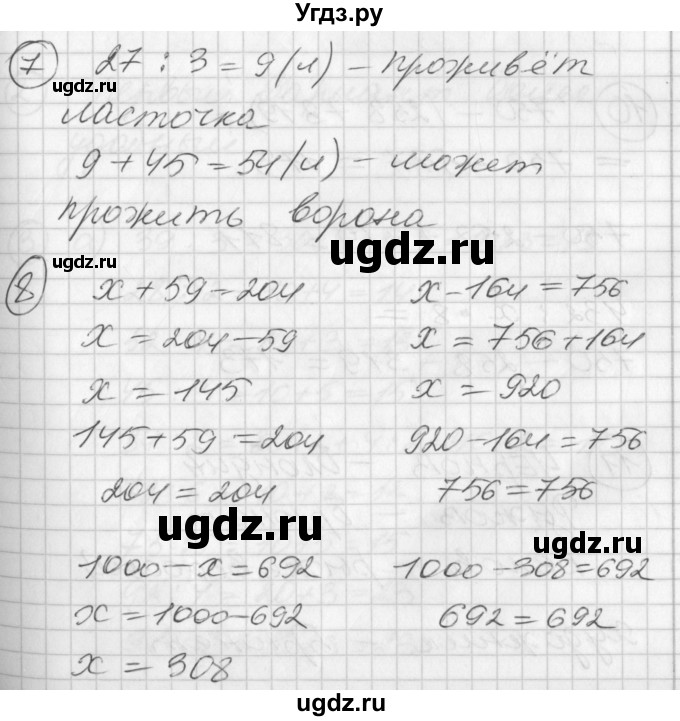 Угдз.ру
7 27 : 3 = 9 (л) – проживёт
ugdz.ru
ласточка
9 + 45 = 54 (л) – может
прожить ворона
ugdz.ru
ugdz.ru
8 x + 59 = 204 x - 164 = 756
x = 204 - 59 x = 756 + 164
x = 145 x = 920
145 + 59 = 204 920 - 164 = 756
204 = 204 756 = 756
ugdz.ru
ugdz.ru
1000 - x = 692 1000 - 308 = 692
x = 1000 - 692 692 = 692
x = 308
ugdz.ru
ugdz.ru